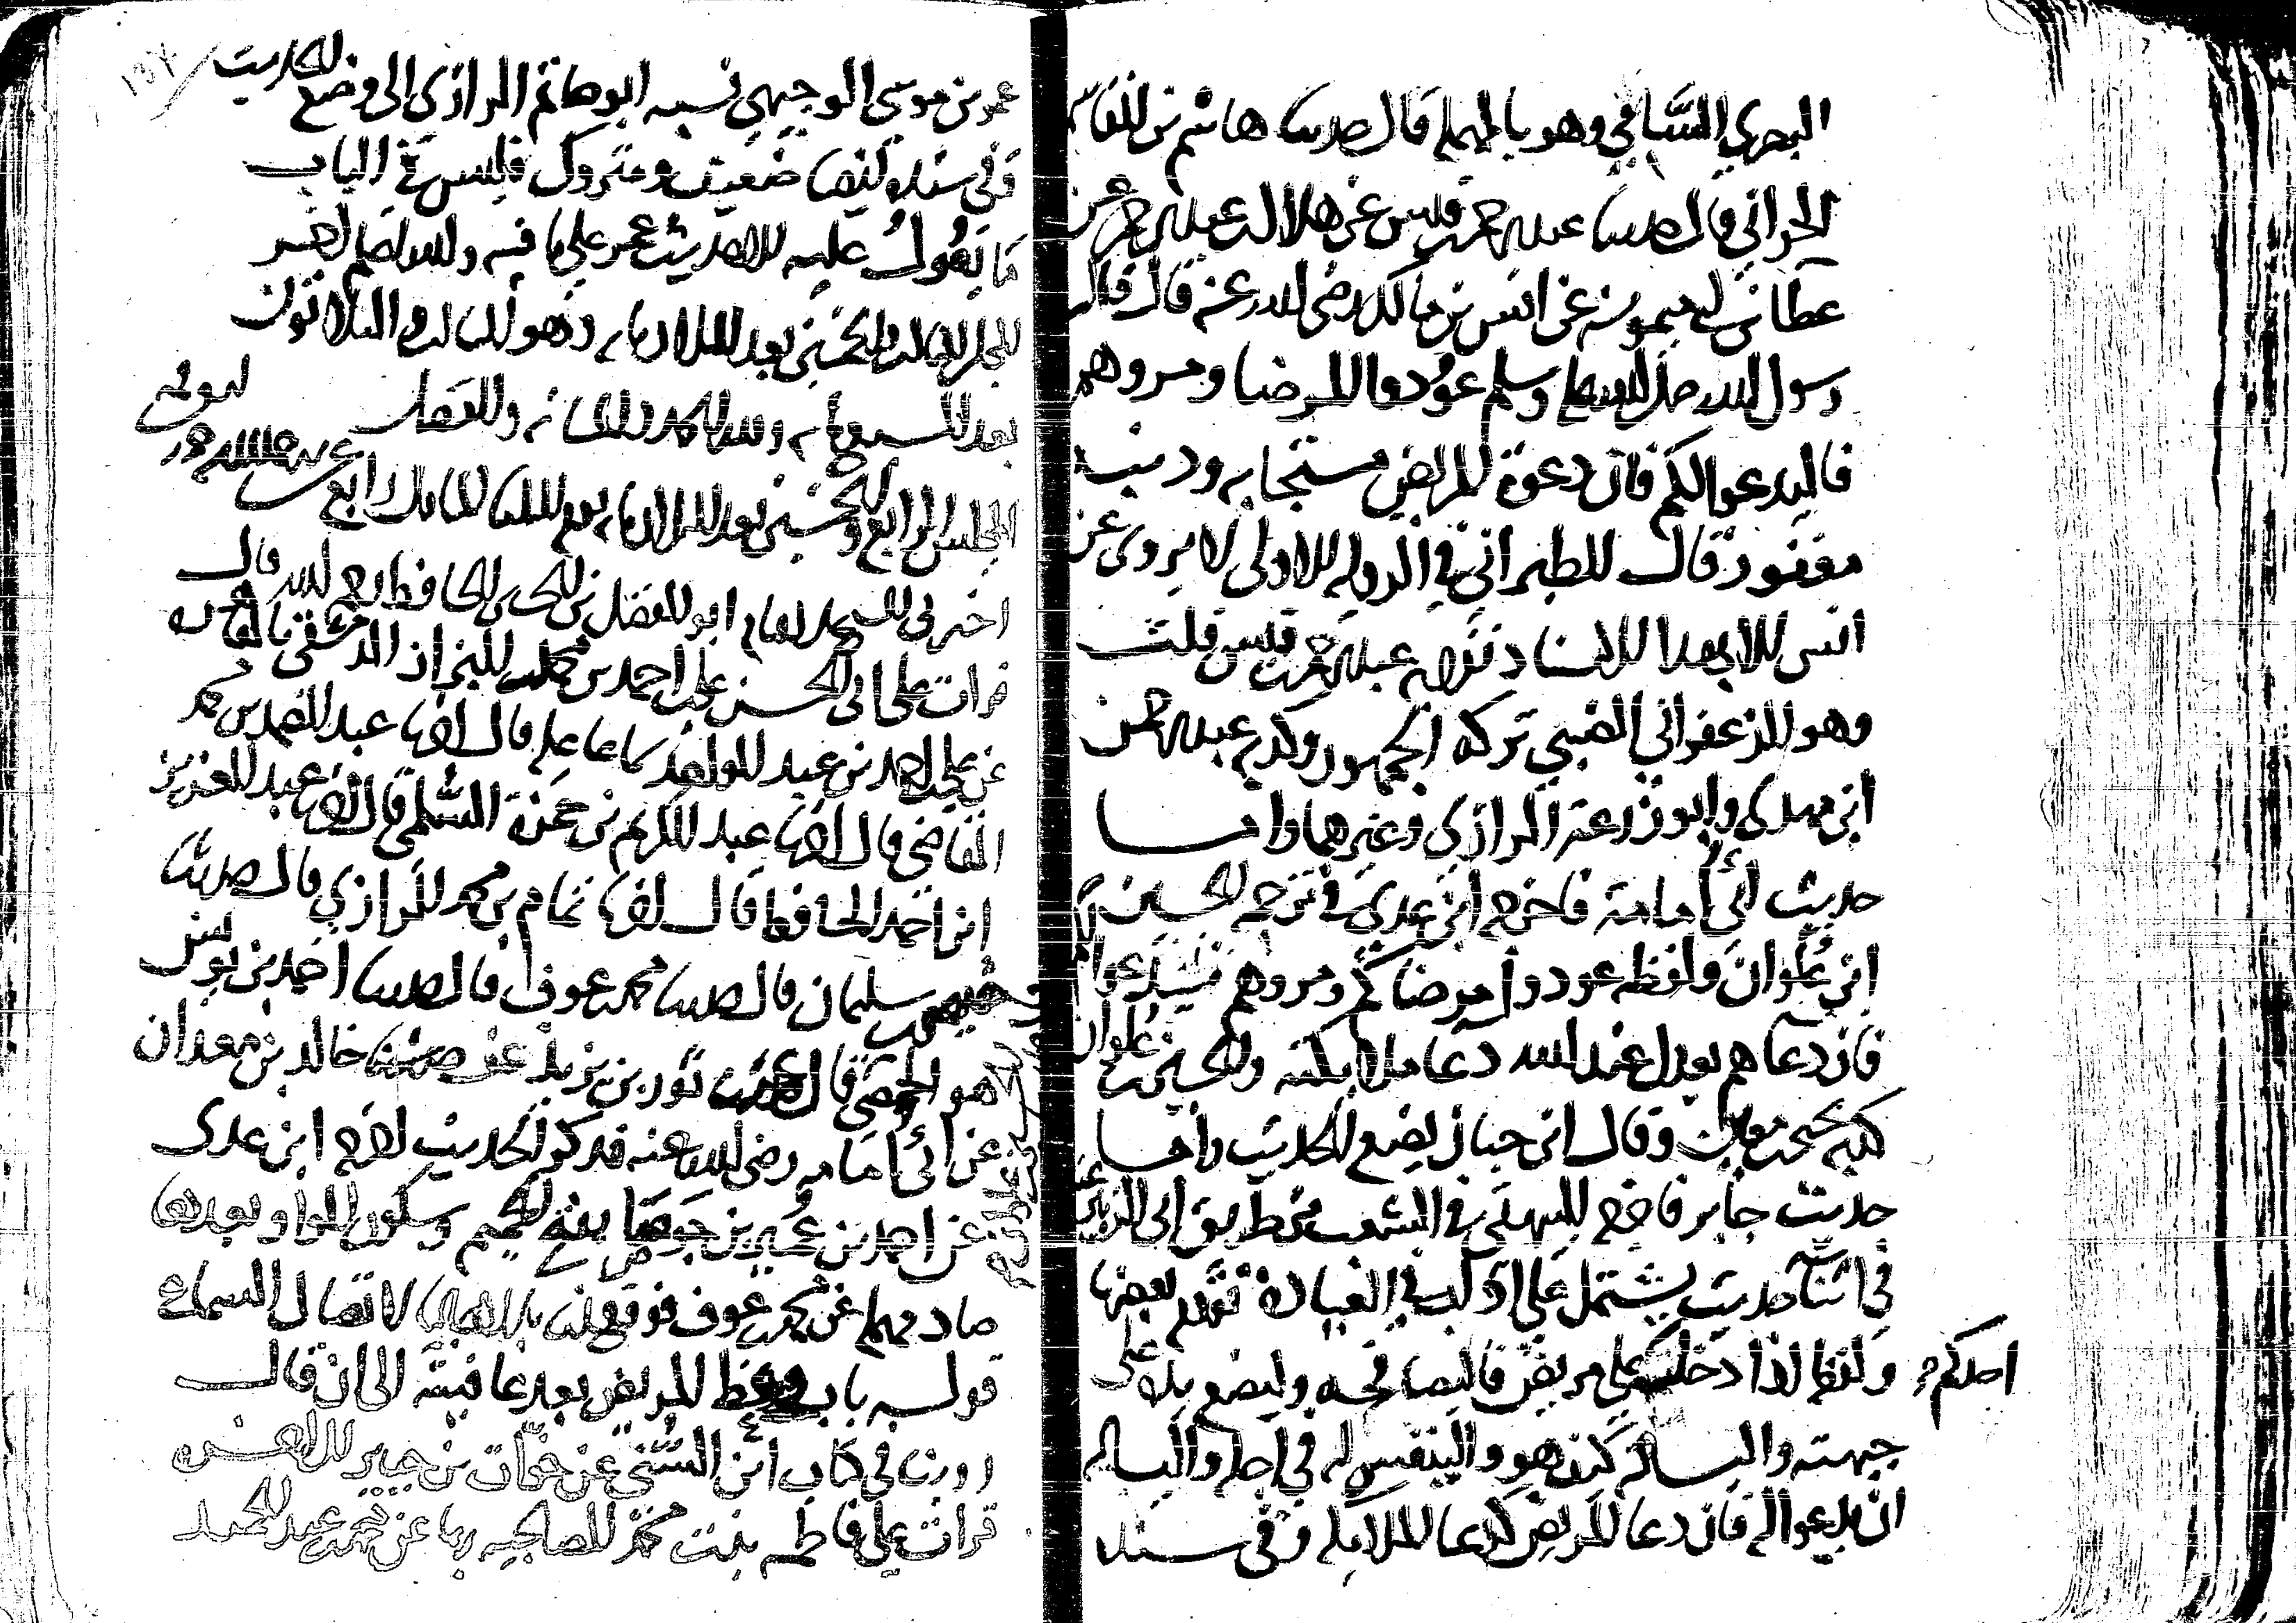 البصري السامي وهو بالمهملة قال حدثنا هاشم بن القاسم
الحراني قال حدثنا عبد الرحمن بن قيس عن هلال بن عبد الرحمن عن
عطا بن ابي ميمونه عن انس بن مالك رضي الله عنه قال قال
رسول الله صلى الله عليه وسلم عودوا المرضا ومروهم
فاليدعوا لكم فان دعوة المريض مستجابه وذنبه
مغفور قال الطبراني في الدعا له الاولى لا يروى عن
انس الا بهذا الاسناد تفرد به عبد الرحمن بن قيس قلت
وهو الزعفراني الضبي تركه الجمهور وكذبه عبد الرحمن
ابن مهدي وابو زرعة الرازي وغيرهما واما
حديث ابي امامة فاخرجه ابن عدي في ترجمة الحسن
ابن علوان ولفظه عودوا مرضاكم ومروهم فليدعوا
فان دعاهم يعدل عند الله دعا ملايكته والحسن بن علوان
كذبه يحيى بن معين وقال ابن حبان يضع الحديث واما
حديث جابر فاخرجه البيهقي في الشعب من طريق ابي الزبير عنه
في اثنآ حديث يشتمل على اداب في العيادة تقدم بعضها
ولفظه اذا دخل احدكم على مريض فاليصافحه وليضع يده على
جبهته واليساله كيف هو والينفس له في اجله واليساله
ان يدعوا له فان دعا المريض كدعا الملايكه وفي سنده
عمر بن موسى الوجيهي نسبه ابو حاتم الرازي الى وضع الحديث
وفي سنده ايضا ضعيف ومتروك فليس في الباب
ما يعول عليه الا حديث عمر على ما فيه والله اعلم اخر
المجلس الثالث والخمسين بعد الثلاث مايه وهو الثالث والثلاثون
بعد السبعمايه ولله الحمد والمنه والفضل
المجلس الرابع والخمسين بعد الثلاث مايه يوم الثلثا المبارك رابع
اخبرني الشيخ الامام ابو الفضل بن الحسين الحافظ رحمه الله قال
قرات على ابي الحسن علي بن احمد بن محمد البزاز الدمشقي بالقاهره
عن علي بن احمد بن عبد الواحد سماعا عليه قال اخبرنا عبد الصمد بن محمد
القاضي قال اخبرنا عبد الكريم بن حمزة السلمي قال اخبرنا عبد العزيز
ابن احمد الحافظ قال اخبرنا تمام بن محمد الرازي قال حدثنا
خيثمه بن سليمان قال حدثنا محمد بن عوف قال حدثنا احمد بن يونس
هو الحمصي قال حدثنا ثور بن يزيد عن خالد بن معدان
عن ابي امامه رضي الله عنه فذكر الحديث اخرجه ابن عدي
عن احمد بن عمير بن جوصا بفتح الجيم وسكون الواو وبعدها
صاد مهمله عن محمد بن عوف فوقع لنا بدلا عاليا لاتصال السماع
قولـه باب وعظ المريض بعد عافيته الى ان قال
روينا في كتاب ابن السني عن خوات بن جبير الى اخره
قرات على فاطمه بنت محمد الصالحيه بها عن محمد بن عبد الحميد